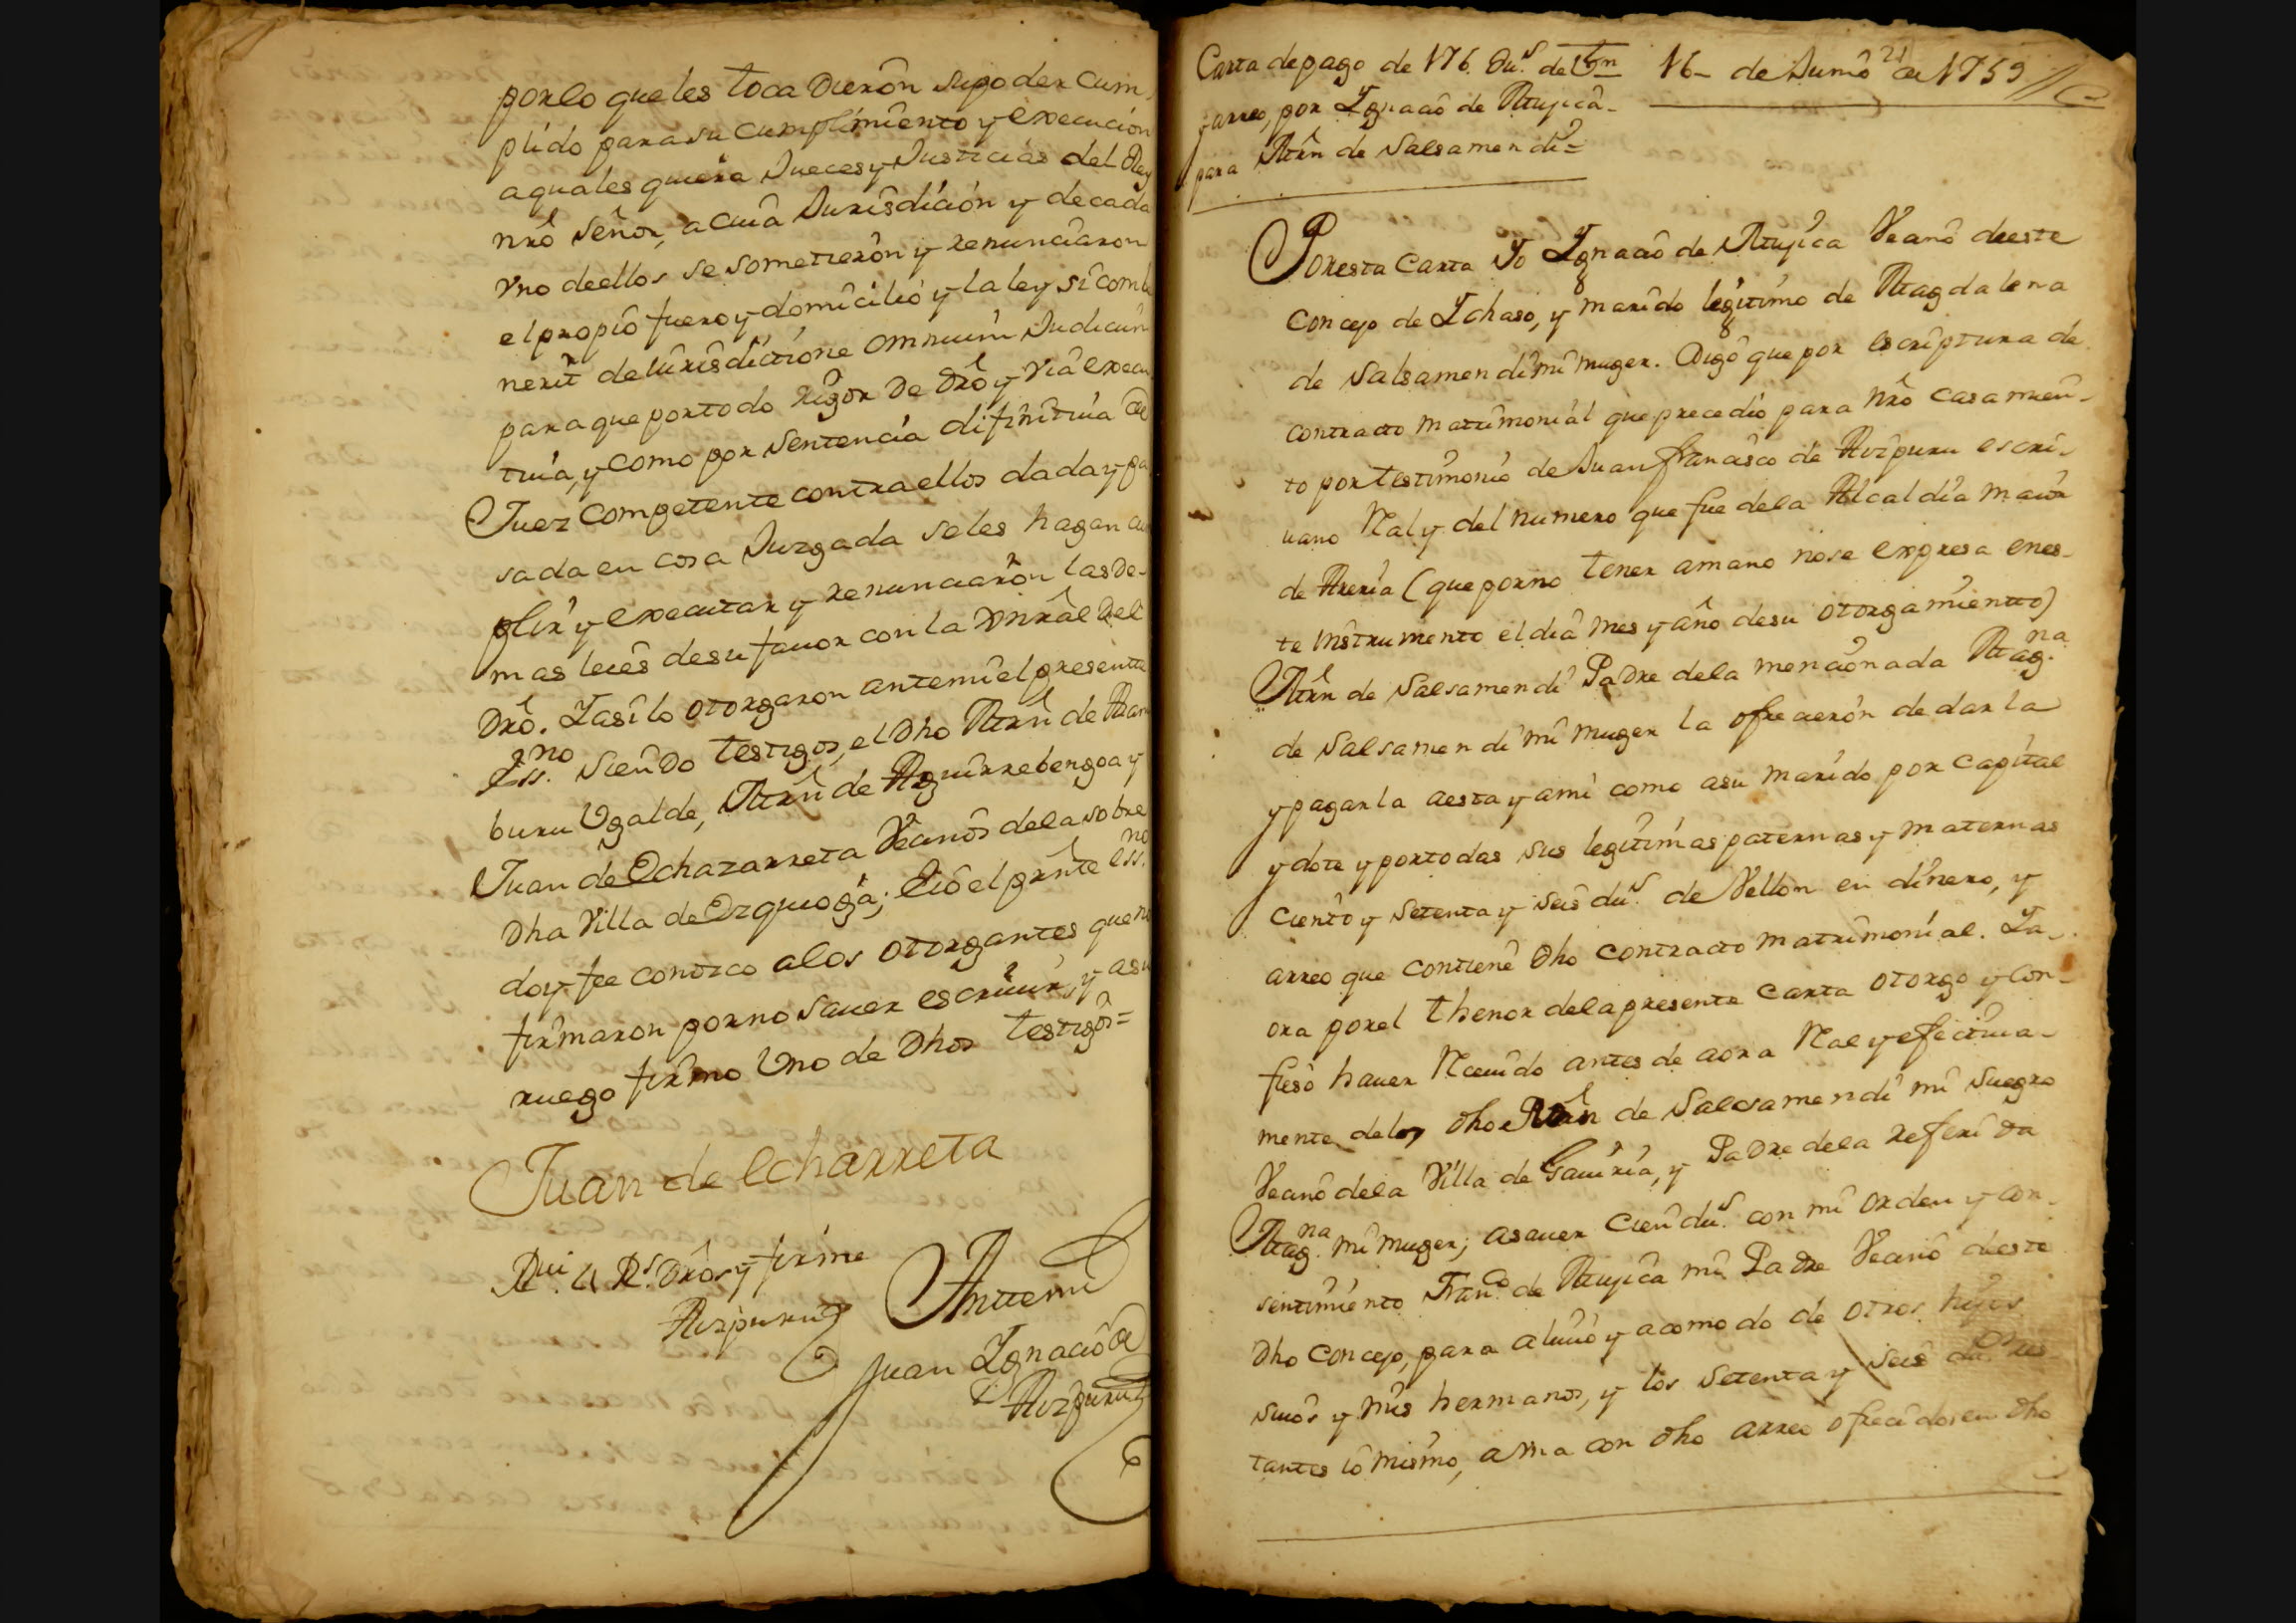 por lo que les toca dieron su poder cum
plido para su cumplimiento y execucion
a quales quiera Jueces y Justicias del Rey
nrô Señor, a cuia Jurisdicion y de cada
vno de ellos se sometieron y renunciaron
el propio fuero y domicilio y la ley si comb
nerit de Iurisdictione omnium Judicum
para que por todo rigor de drô y via execu
tiua, y como por Sentencia difinitiua de
Juez competente contra ellos dada y pa
sada en cosa Juzgada se les hagan cum
plir y executar y renunciaron las de
mas leies de su fauor con la gnrâl del
drô. I asi lo otorgaron ante mi el presente
Ess.no siendo testigos, el dho Mrñ de Aram
buru Ugalde, Mrñ de Aguirrebengoa y
Juan de Echazarreta Veanos de la sobre
dha Villa de Ezquioga; E io el prnte ess.no
doy fee conozco a los otorgantes que no
firmaron por no sauer escriuir, y a su
ruego firmo Uno de dhos testigos=
Juan de Echarreta
Rui. 4 Rs. drôs y firme
Aizpuru
Ante mi
Juan Ignacio de
Aizpuru
Carta de pago de 176 Dus. de Von
y arreo, por Ignacio de Mujica
para Mrñ de Salsamendi=
16 de Junio 21 de 1759
Por esta Carta Yo Ignacio de Mujica Veano de este
Concejo de Ichaso, y marido legitimo de Magdalena
de Salsamendi mi muger. Digo que por escriptura de
contracto matrimonial que precedio para nrô casamien-
to por testimonio de Juan francisco de Aizpuru escri-
uano Ral y del numero que fue de la Alcaldia maior
de Areria (que por no tener a mano no se expresa en es-
te instrumento el dia mes y año de su otorgamiento)
Mrñ de Salsamendi Padre de la mencionada Mag.na
de Salsamendi mi muger la ofrecieron de dar la
y pagar la a esta y a mi como a su marido por capital
y dote y por todas sus legitimas paternas y maternas
ciento y setenta y seis dus. de Vellon en dinero, y
arreo que contiene dho contracto matrimonial. I a-
ora por el thenor de la presente carta otorgo y con-
fieso hauer Rceuido antes de aora Ral y efectiua-
mente del dho Mrñ de Salsamendi mi suegro
Veano de la Villa de Gauiria, y Padre de la referida
Mag.na mi muger; a sauer cien dus. con mi orden y con-
sentimiento Franco. de Mujica mi Padre Veano de este
dho Concejo, para aliuio y acomodo de otros hijos
suios y mis hermanos, y los setenta y seis dus. res-
tantes io mismo, a una con dho arreo ofrecidos en dho